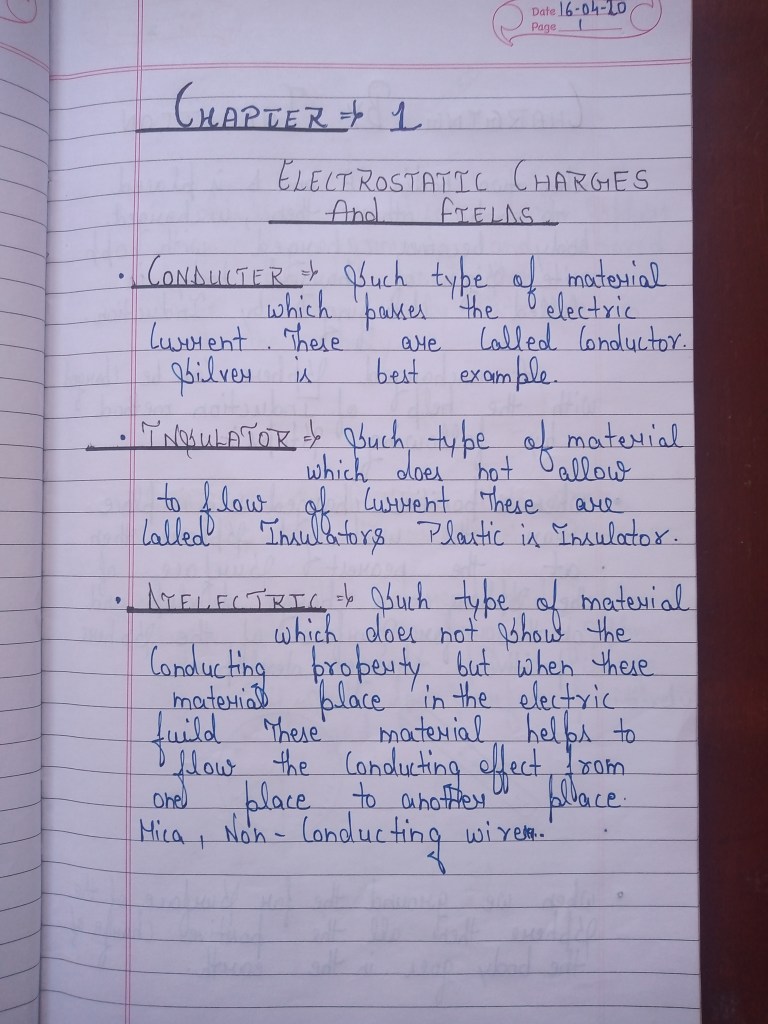 Date 16-04-20
Page 1
CHAPTER ⇒ 1
ELECTROSTATIC CHARGES
And FIELDS
• CONDUCTER ⇒ Such type of material
which passes the electric
Current. These are Called Conductor.
Silver is best example.
• INSULATOR ⇒ Such type of material
which does not allow
to flow of Current These are
Called Insulators Plastic is Insulator.
• DIELECTRIC ⇒ Such type of material
which does not Show the
Conducting property but when these
material place in the electric
fuild These material helps to
flow the Conducting effect from
one place to another place.
Mica, Non-Conducting wire..